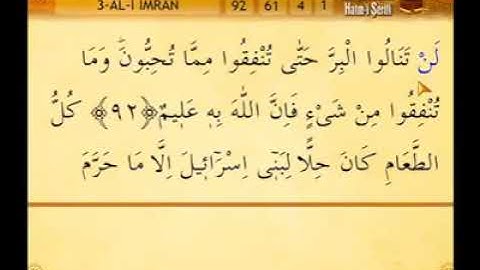 3-AL-I IMRAN 92 61 4 1 Hatm-i Şerif
لَنْ تَنَالُوا الْبِرَّ حَتّٰى تُنْفِقُوا مِمَّا تُحِبُّونَۜ وَمَا
تُنْفِقُوا مِنْ شَيْءٍ فَاِنَّ اللّٰهَ بِه۪ عَل۪يمٌ ﴿٩٢﴾ كُلُّ
الطَّعَامِ كَانَ حِلًّا لِبَن۪ٓي اِسْرَٓائ۪لَ اِلَّا مَا حَرَّمَ